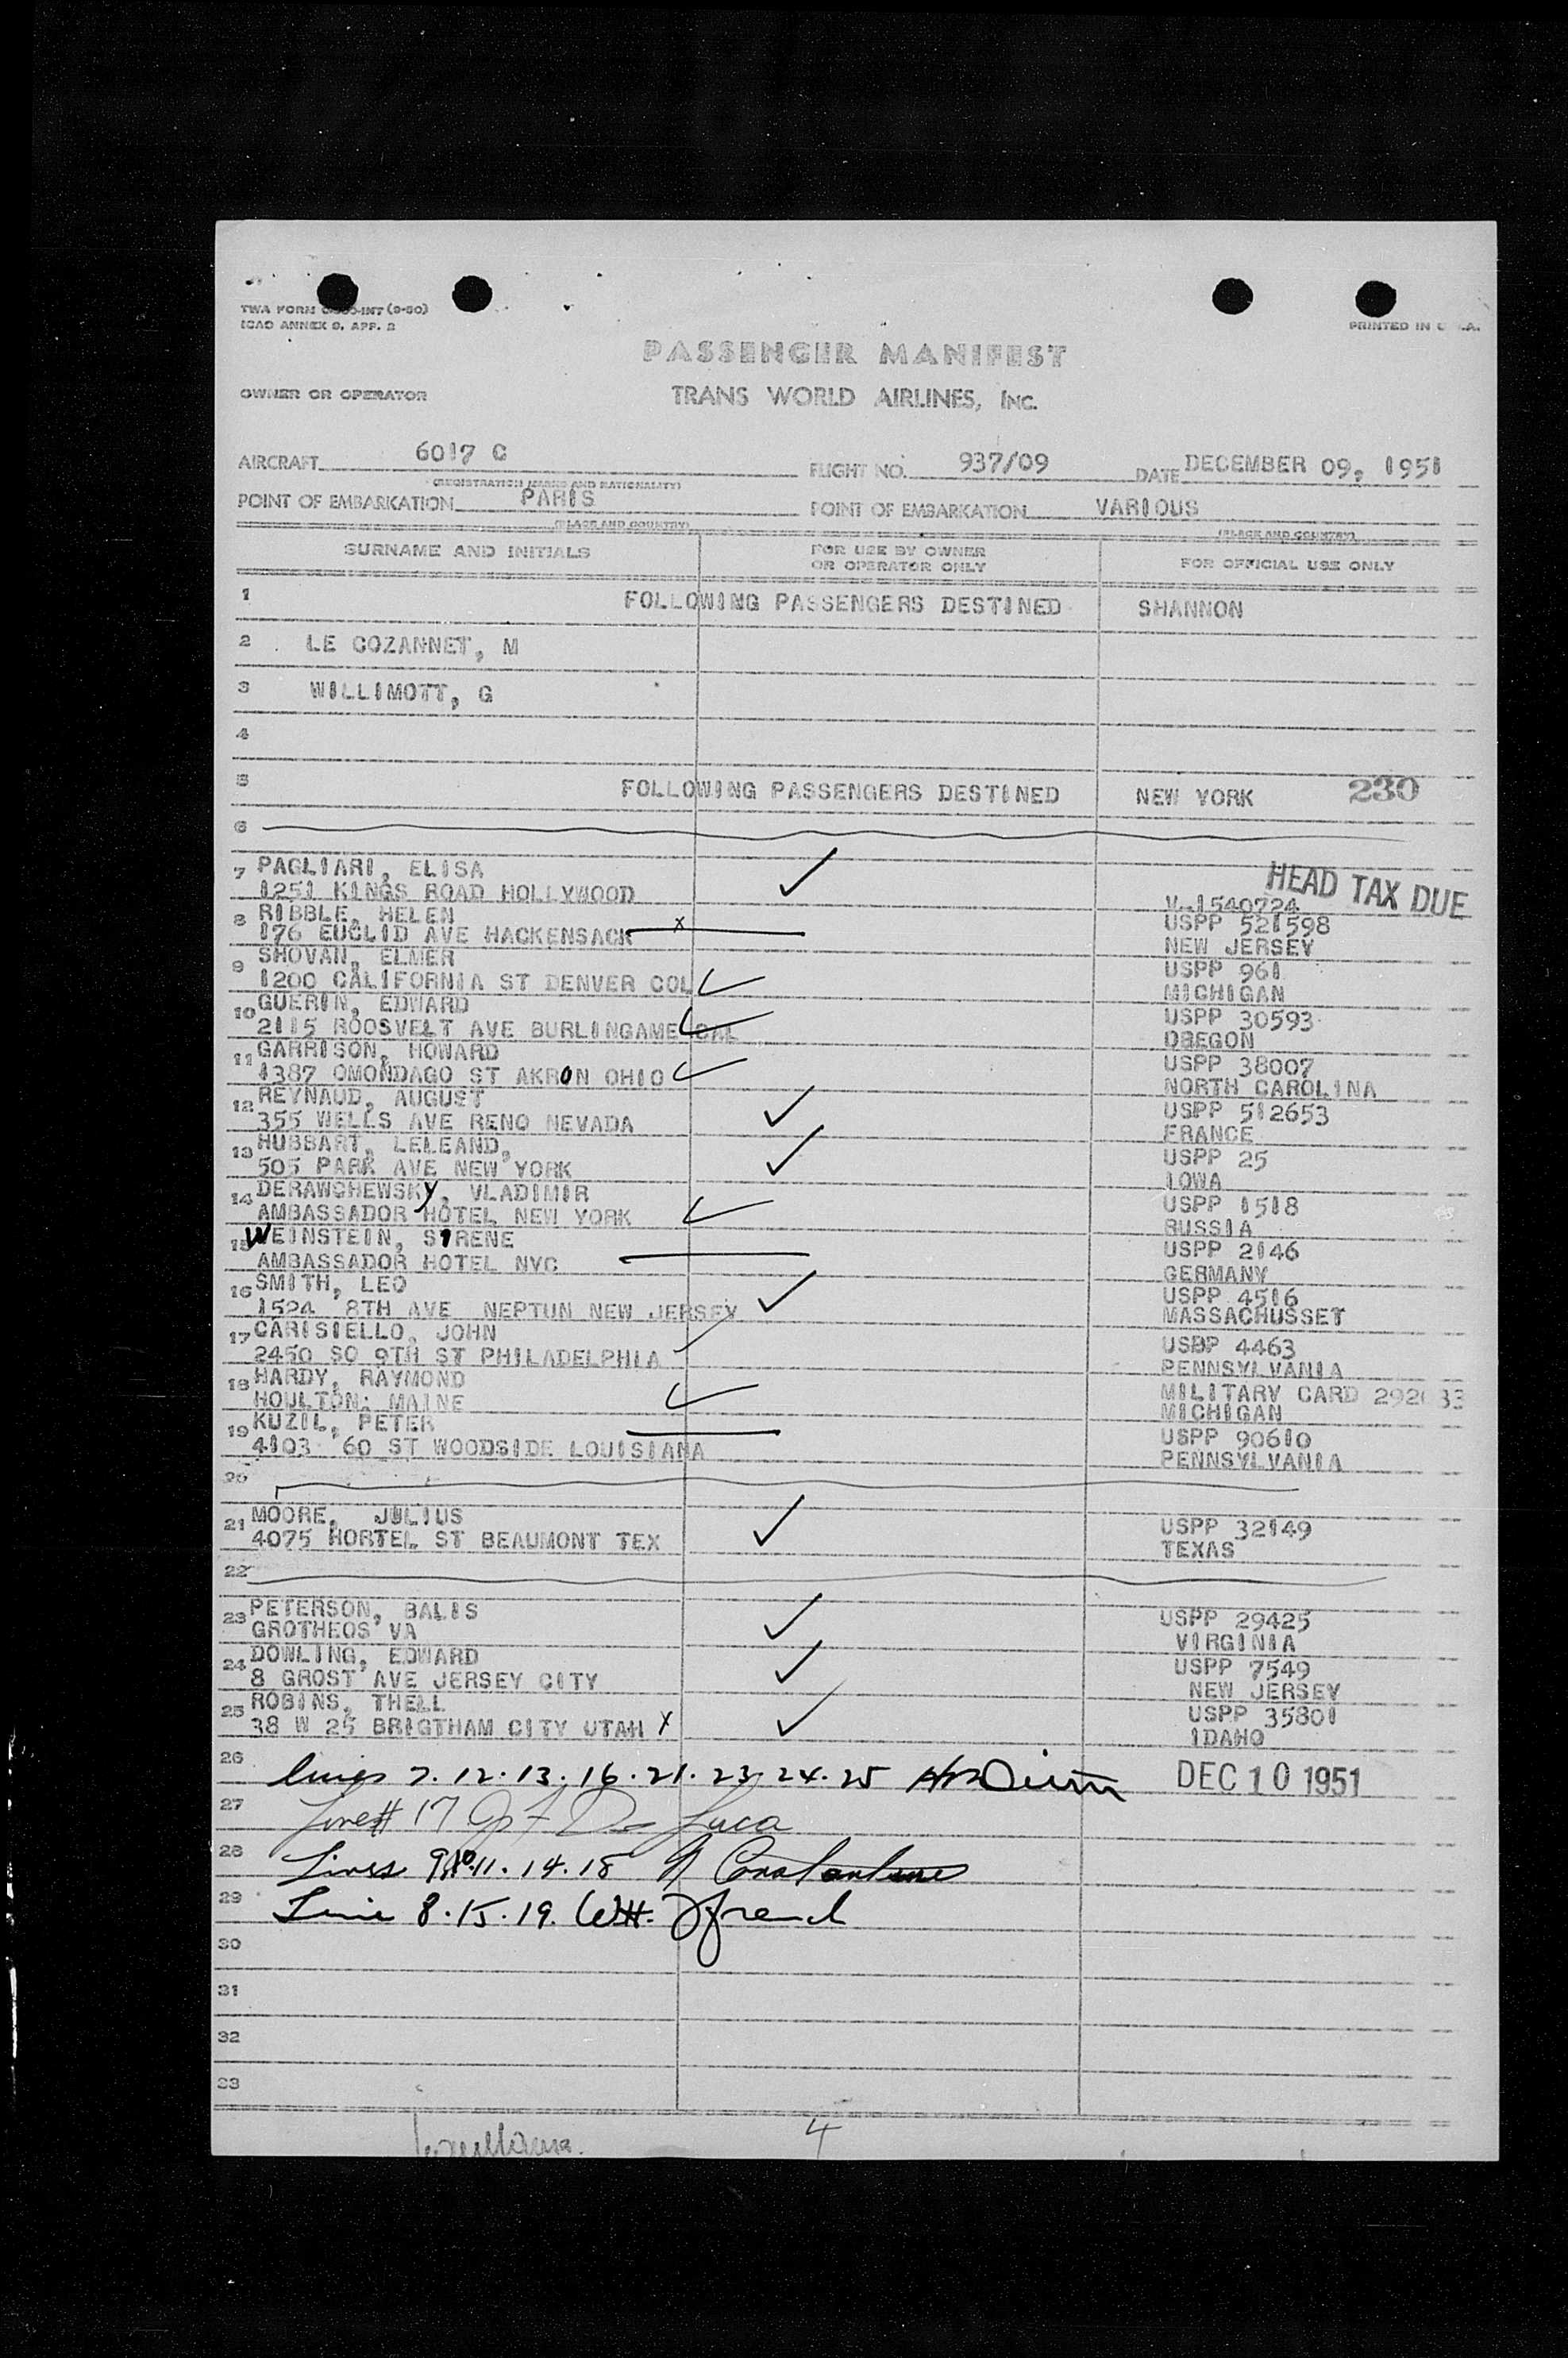 PRINTED IN
ICAO ANNEX 9, APP. 2
PASSENGER MANIFEST
OWNER OR OPERATOR
TRANS WORLD AIRLINES, INC.
AIRCRAFT 6017 C FLIGHT NO. 937/09 DATE DECEMBER 09, 1951
(REGISTRATION MARKS AND NATIONALITY)
POINT OF EMBARKATION PARIS POINT OF EMBARKATION VARIOUS
(PLACE AND COUNTRY) (PLACE AND COUNTRY)
SURNAME AND INITIALS FOR USE BY OWNER OR OPERATOR ONLY FOR OFFICIAL USE ONLY
1 FOLLOWING PASSENGERS DESTINED SHANNON
2 LE COZANNET, M
3 WILLIMOTT, G
4
5 FOLLOWING PASSENGERS DESTINED NEW YORK 230
6
HEAD TAX DUE
7 PAGLIARI, ELISA
1251 KINGS ROAD HOLLYWOOD V.1540724
8 RIBBLE, HELEN USPP 521598
176 EUCLID AVE HACKENSACK X NEW JERSEY
9 SHOVAN, ELMER USPP 961
1200 CALIFORNIA ST DENVER COL MICHIGAN
10 GUERIN, EDWARD USPP 30593
2115 ROOSVELT AVE BURLINGAME CAL OREGON
11 GARRISON, HOWARD USPP 38007
1387 OMONDAGO ST AKRON OHIO NORTH CAROLINA
12 REYNAUD, AUGUST USPP 512653
355 WELLS AVE RENO NEVADA FRANCE
13 HUBBART, LELEAND, USPP 25
505 PARK AVE NEW YORK IOWA
14 DERAWCHEWSKY, VLADIMIR USPP 1518
AMBASSADOR HOTEL NEW YORK RUSSIA
15 WEINSTEIN, SIRENE USPP 2146
AMBASSADOR HOTEL NYC GERMANY
16 SMITH, LEO USPP 4516
1524 8TH AVE NEPTUN NEW JERSEY MASSACHUSSET
17 CARISIELLO, JOHN USBP 4463
2450 SO 9TH ST PHILADELPHIA PENNSYLVANIA
18 HARDY, RAYMOND MILITARY CARD
HOULTON: MAINE MICHIGAN
19 KUZIL, PETER USPP 90610
4103 60 ST WOODSIDE LOUISIANA PENNSYLVANIA
20
21 MOORE, JULIUS USPP 32149
4075 HORTEL ST BEAUMONT TEX TEXAS
22
23 PETERSON, BALIS USPP 29425
GROTHEOS VA VIRGINIA
24 DOWLING, EDWARD USPP 7549
8 GROST AVE JERSEY CITY NEW JERSEY
25 ROBINS, THELL USPP 35801
38 W 25 BRIGTHAM CITY UTAH X IDAHO
26 lines 7.12.13.16.21.23.24.25 DEC 10 1951
27 Line # 17 De Luca
28 Lines 9.10.11.14.18 Constantine
29 Line 8.15.19.
30
31
32
33
4